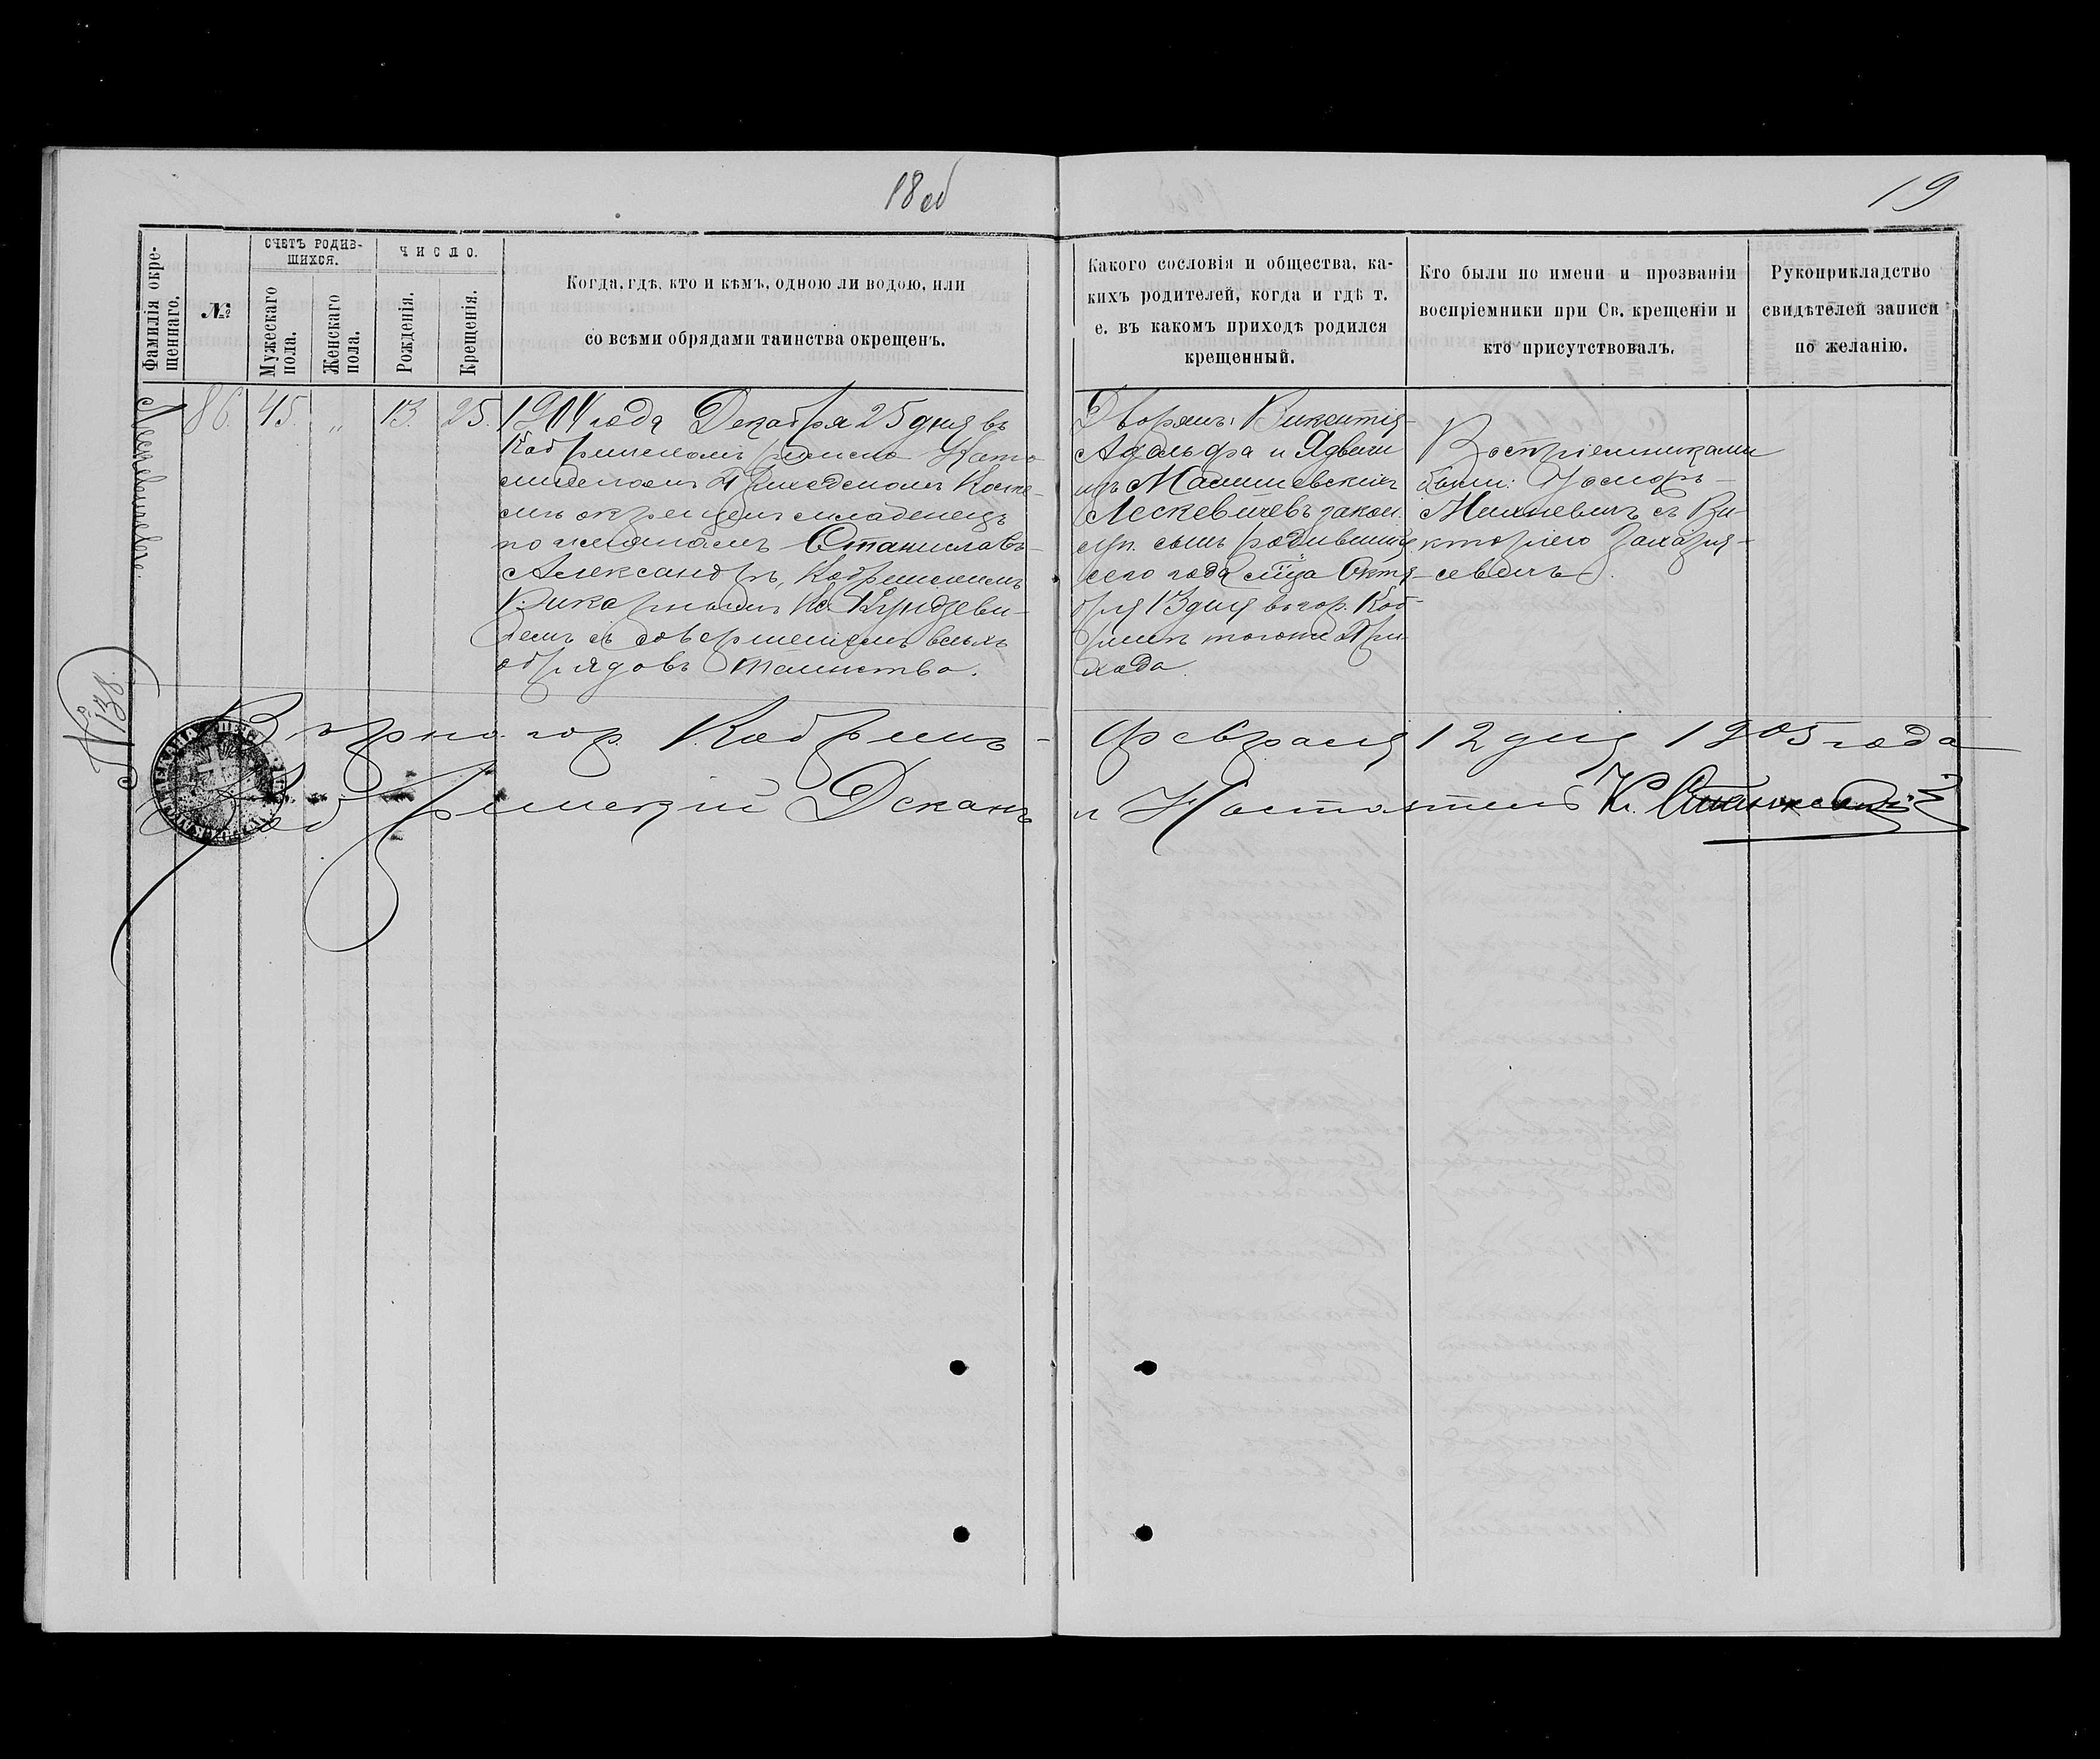 18 об
19
Фамилія окре-
щеннаго.
№
СЧЕТЪ РОДИВ-
ШИХСЯ.
Мужескаго
пола.
Женскаго
пола.
ЧИСЛО.
Рожденія.
Крещенія.
Когда, гдѣ, кто и кѣмъ, одною ли водою, или
со всѣми обрядами таинства окрещенъ.
Какого сословія и общества, ка-
кихъ родителей, когда и гдѣ т.
е. въ какомъ приходѣ родился
крещенный.
Кто были по имени и прозванію
воспріемники при Св. крещеніи и
кто присутствовалъ.
Рукоприкладство
свидѣтелей записи
по желанію.
86. 45. „ 13. 25.
1904 года Декабря 25 дня въ
Кобринскомъ римско Като
лическомъ Приходскомъ Косте-
лѣ окрещенъ младенецъ
по именамъ Станиславъ-
Александръ, Кобринскимъ
Викарнымъ Кс.
чемъ съ совершеніемъ всѣхъ
обрядовъ таинства.
Дворянъ: Викентія-
Адольфа и Ядвиги
изъ
Лескевичевъ закон.
супр. сынъ родившійся
сего года м-ца Октя-
бря 13 дня въ гор. Коб-
ринѣ того же При-
хода.
Воспріемниками
были: Іосифъ
съ Ви-
кторіею Захарія-
севичъ.
№ 138.
Вѣрно. гор. Кобринъ - Февраля 12 дня 1905 года
Кобринскій Деканъ и Настоятель К.